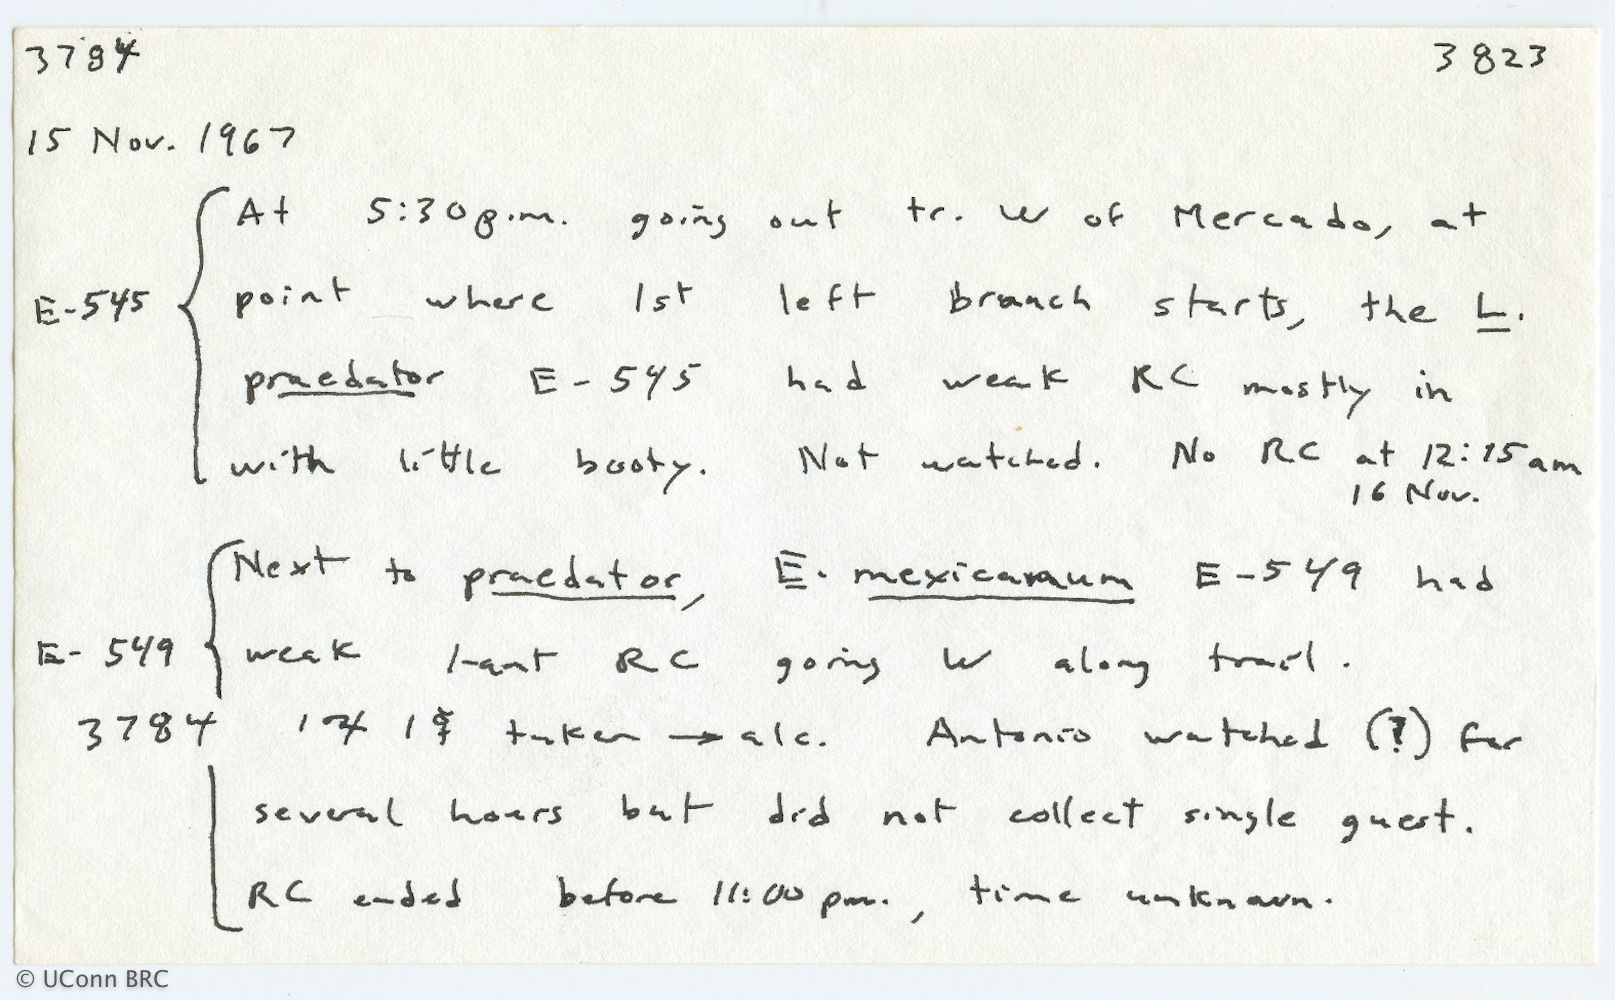 3784 3823
15 Nov. 1967
At 5:30 p.m. going out tr. W of Mercado, at
E-545 point where 1st left branch starts, the L.
praedator E-545 had weak RC mostly in
with little booty. Not watched. No RC at 12:15 am
16 Nov.
Next to praedator, E. mexicanum E-549 had
E-549 weak 1-ant RC going W along trail.
3784 taken → alc. Antonio watched (?) for
several hours but did not collect single guest.
RC ended before 11:00 pm., time unknown.
© UConn BRC